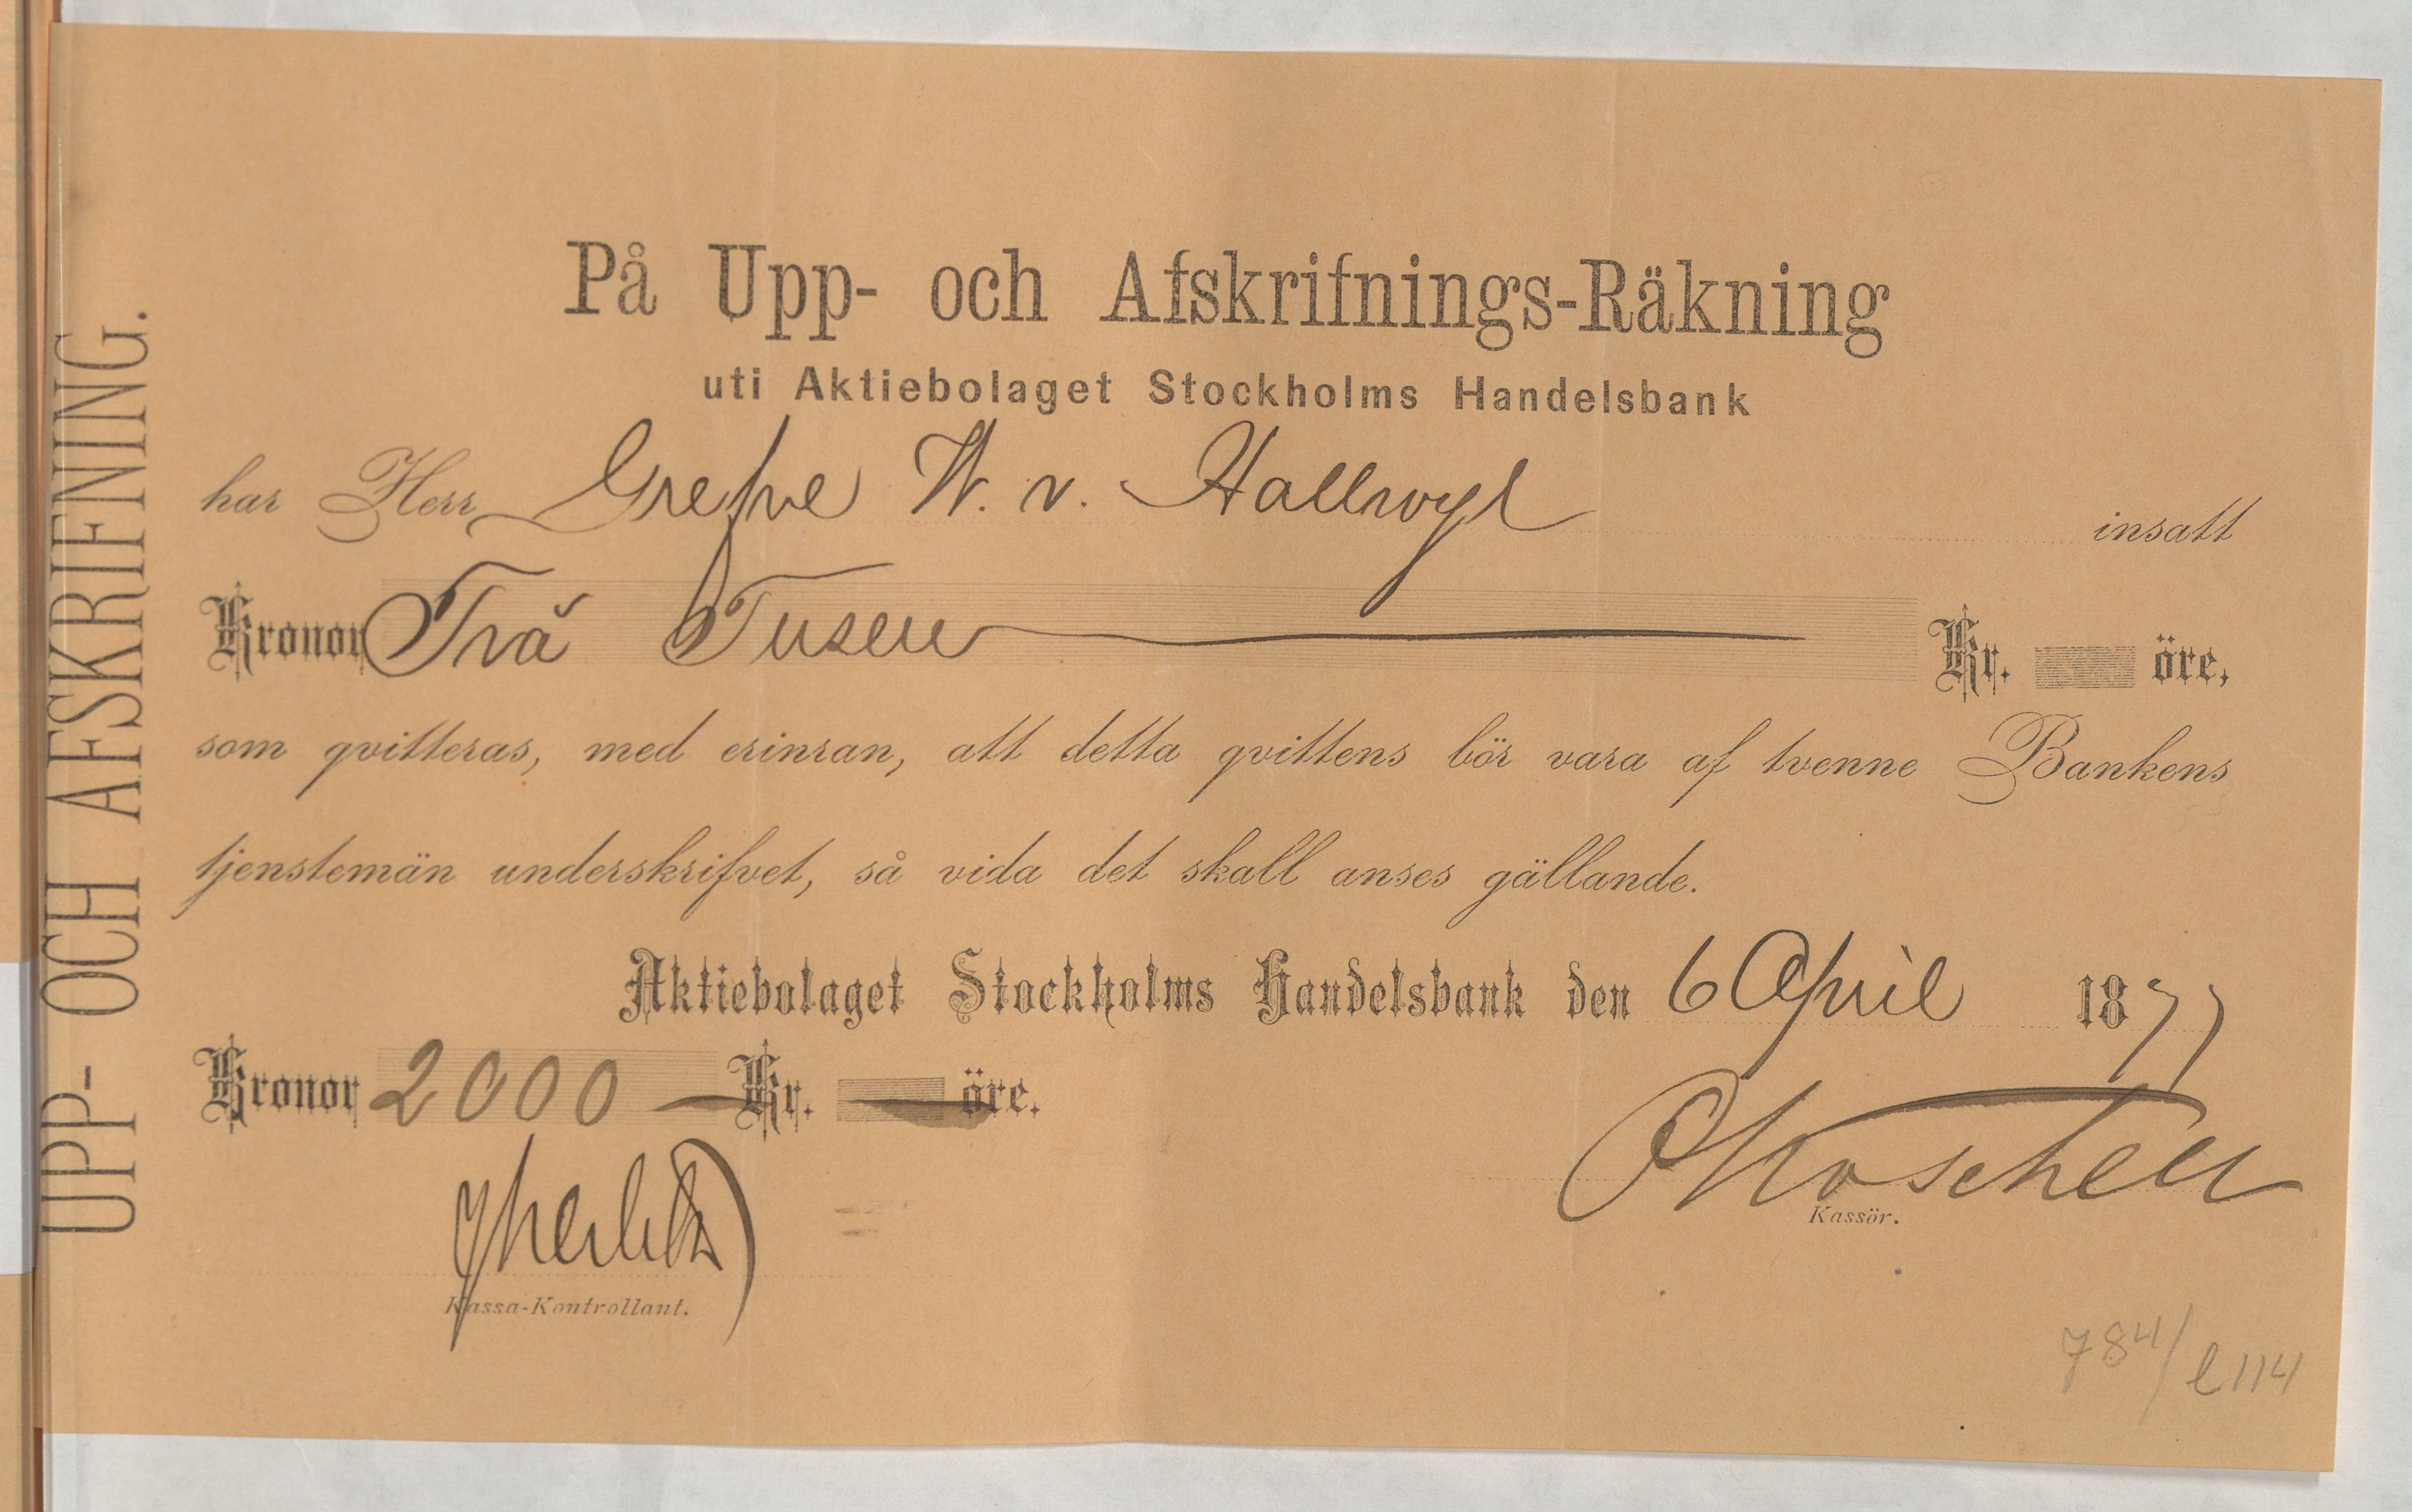 UPP- OCH AFSKRIFNING.
På Upp- och Afskrifnings-Räkning
uti Aktiebolaget Stockholms Handelsbank
har Herr Grefve W. v. Hallwyl insatt
Kronor Två Tusen Kr. öre,
som qvitteras, med erinran, att detta qvittens bör vara af tvenne Bankens
tjenstemän underskrifvet, så vida det skall anses gällande.
Aktiebolaget Stockholms Handelsbank den 6 April 1877
Kronor 2000 — Kr. — öre.
Kassör.
Kassa-Kontrollant.
784/l114